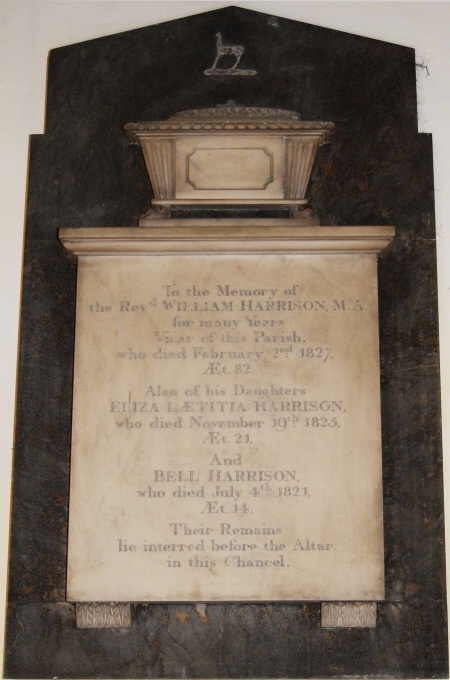 To the Memory of
the Revd WILLIAM HARRISON, M.A.
for many Years
Vicar of this Parish,
who died February 2nd 1827,
Æt. 82.
Also of his Daughters
ELIZA LÆTITIA HARRISON,
who died November 19th 1825,
Æt. 21.
And
BELL HARRISON,
who died July 4th 1821,
Æt. 14.
Their Remains
lie interred before the Altar
in this Chancel.